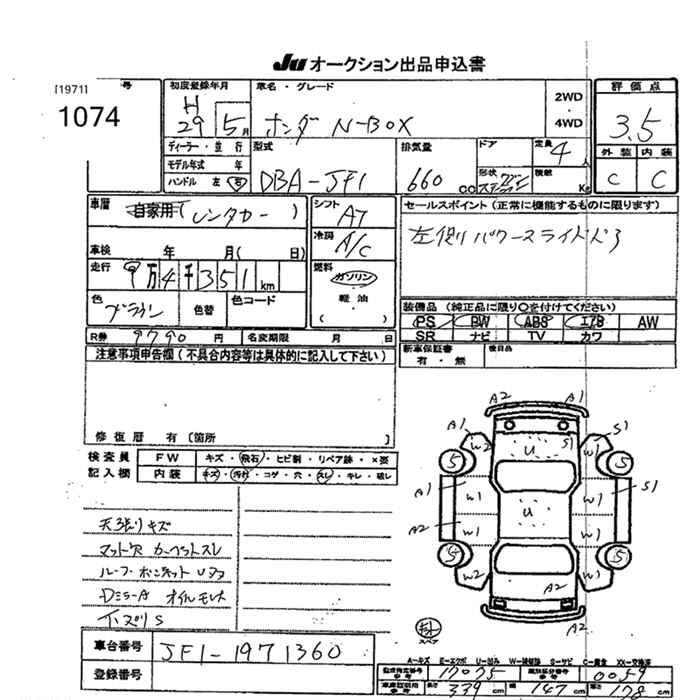 JU オークション出品申込書
[1971] 号
1074
初度登録年月
H29 5月
車名・グレード
ホンダ N-BOX
2WD
・
4WD
評価点
3.5
ディーラー・並行
モデル年式 年
ハンドル 左 右
型式
DBA-JF1
排気量
660 cc
ドア
形状
定員
4 人
積載
Kg
外装 内装
C C
車歴
自家用 (レンタカー)
シフト
AT
セールスポイント (正常に機能するものに限ります)
左側パワースライドドア
冷房
A/C
車検 年 月( 日)
走行
9万4千351 km
燃料
ガソリン
軽油
( )
色
ブラウン
色替
色コード
装備品 (純正品に限り○を付けてください)
PS PW ABS エアB AW
SR ナビ TV カワ
R券 9790 円
名変期限 月 日
新車保証書
有・無
後日品
注意事項申告欄(不具合内容等は具体的に記入して下さい)
修復歴 有 〔箇所 〕
検査員
記入欄
FW キズ・飛石・ヒビ割・リペア跡・×要
内装 キズ・汚れ・コゲ・穴・スレ・キレ・破レ
天張りキズ
マット穴 カーペットスレ
ルーフ・ボンネットUタコ
DミラーA オイルモレ
下ズリS
A2 A1
A1 W2 U S1 W1 S1
5 5
A1 W1 W1 S1
U
A2 W1 W1
5 5
W2 A2 W1
A2
スペア
A-キズ E-エクボ U-凹み W-補修跡 S-サビ C-腐食 XX-交換済
車台番号
JF1-1971360
登録番号
型式指定番号
参考
17075
類別区分番号
参考
0059
車庫証明用
参考
長さ
339 cm
幅
147 cm
高さ
178 cm